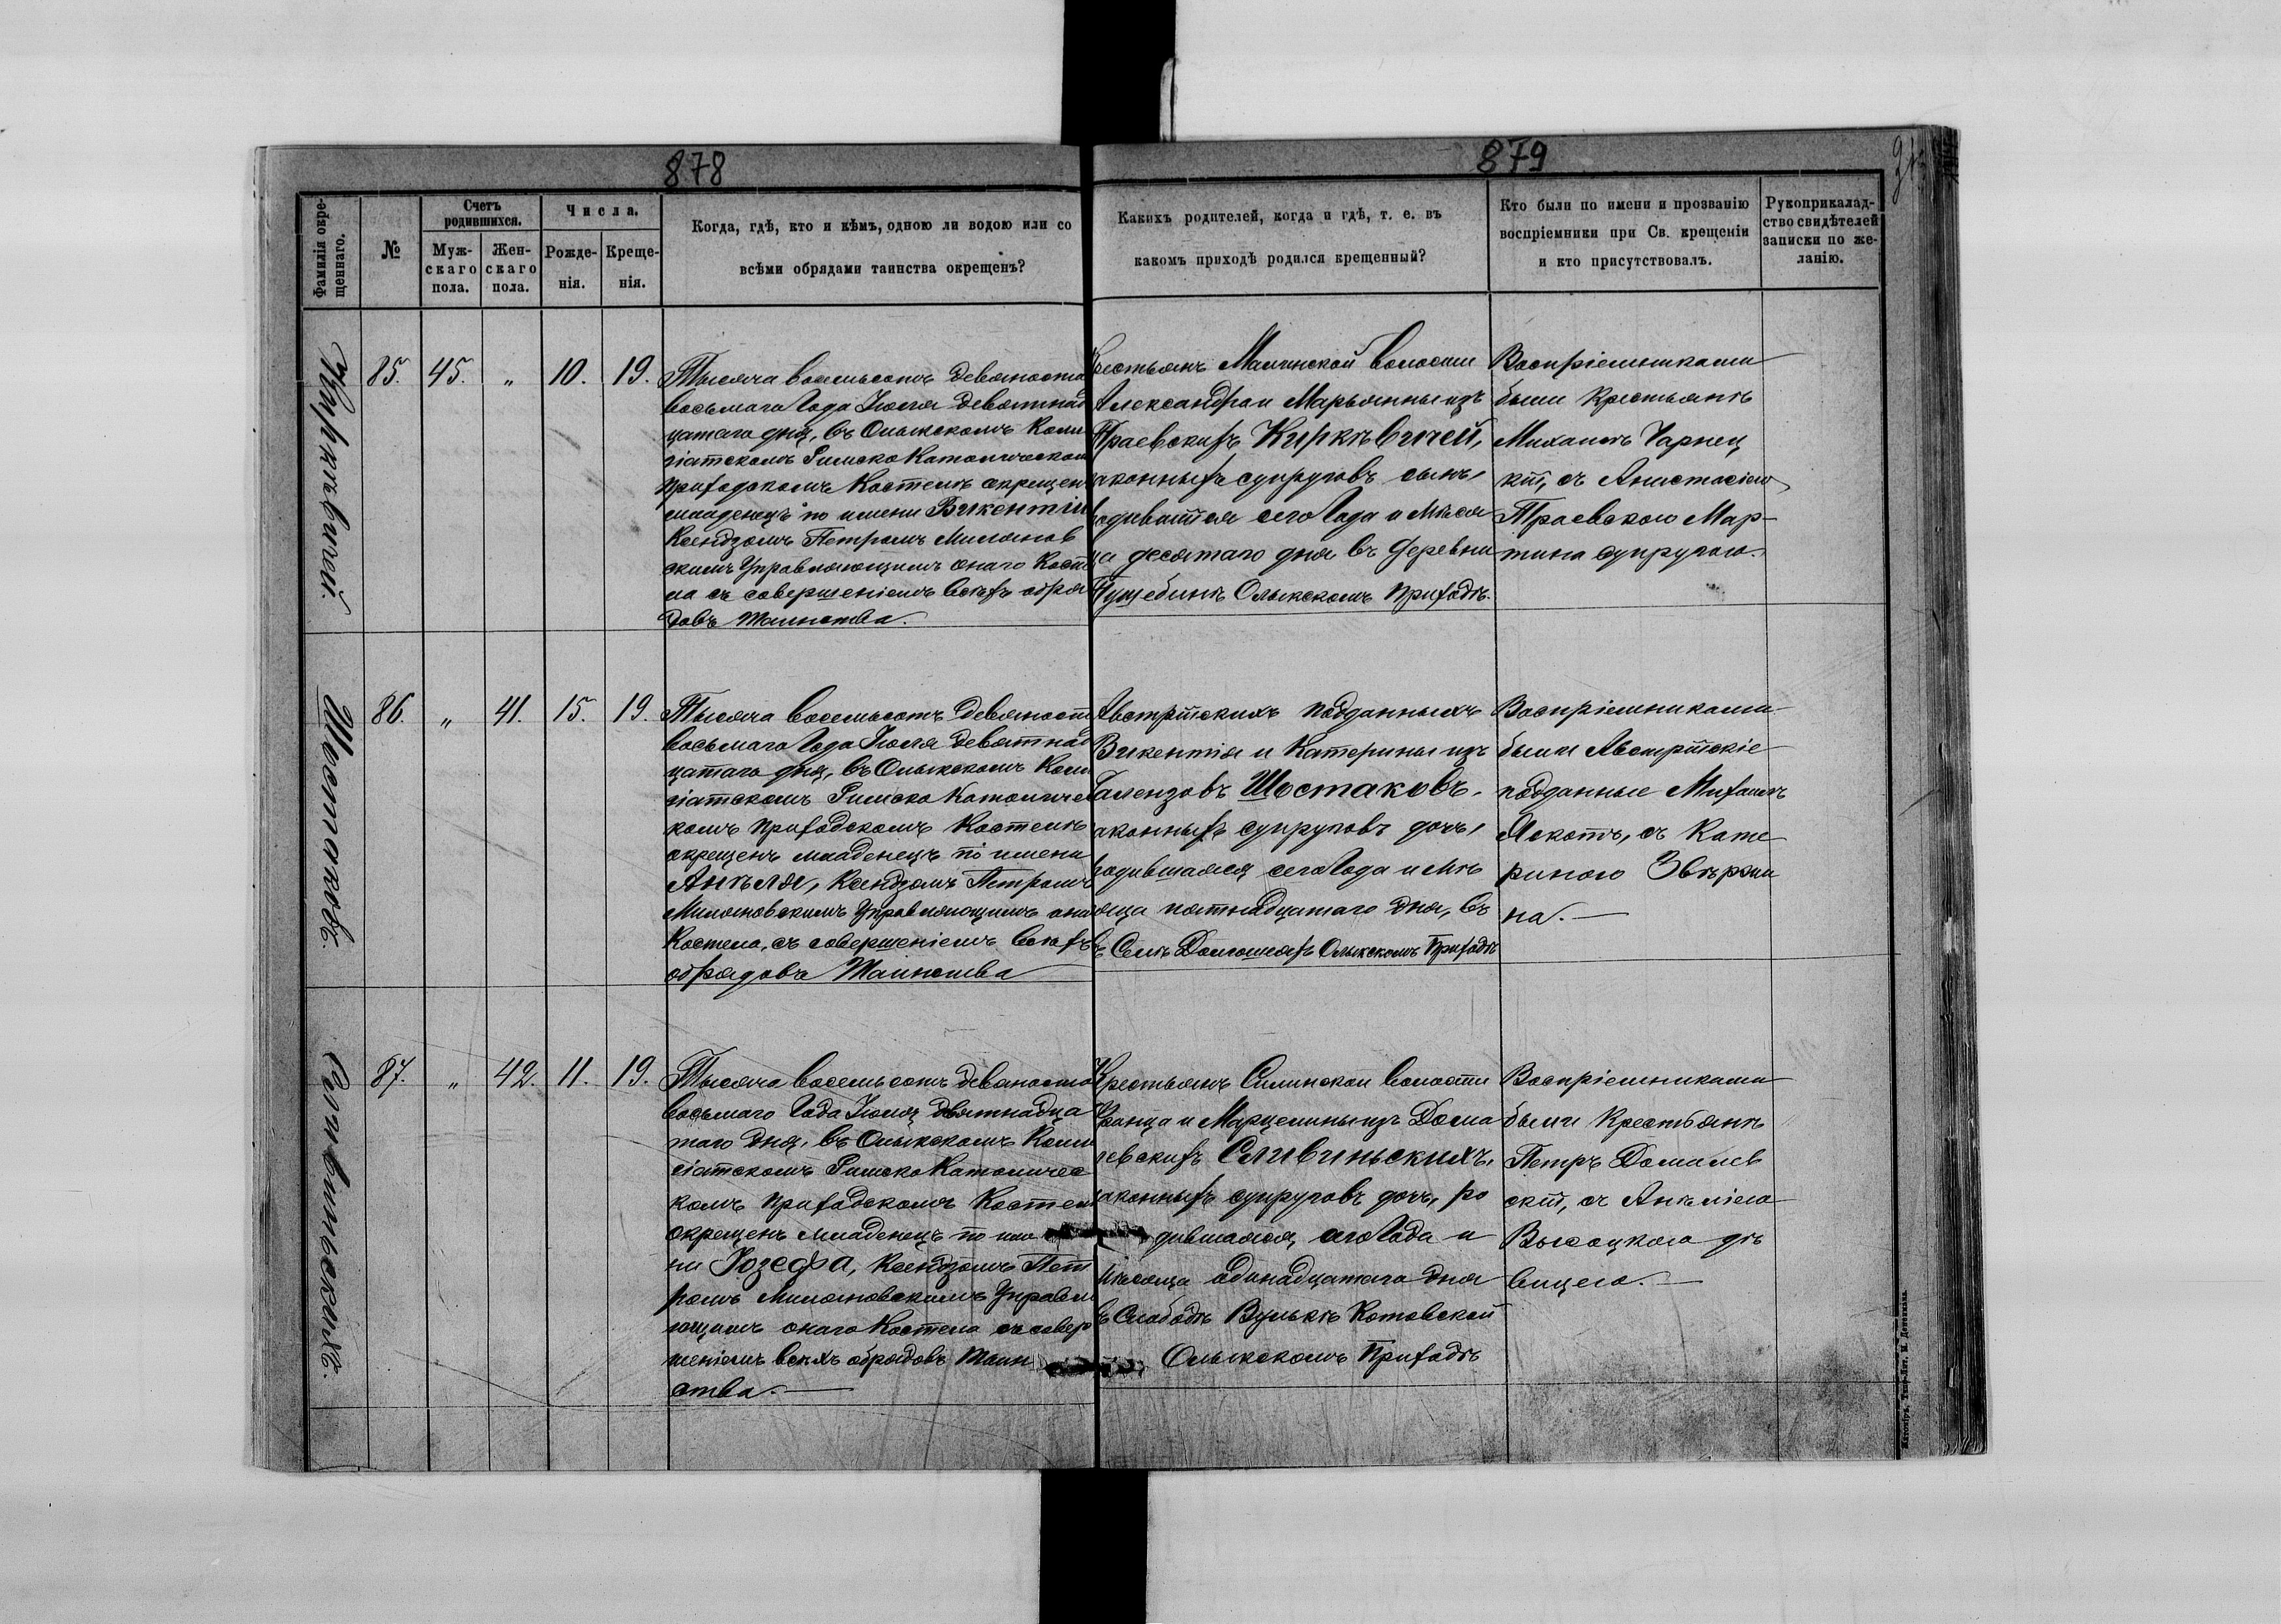 878
879
Фамилія окрещеннаго.
№
Счетъ родившихся.
Мужскаго пола.
Женскаго пола.
Числа.
Рожденія.
Крещенія.
Когда, гдѣ, кто и кѣмъ, одною ли водою или со
всѣми обрядами таинства окрещенъ?
Какихъ родителей, когда и гдѣ, т. е. въ
какомъ приходѣ родился крещенный?
Кто были по имени и прозванію
воспріемники при Св. крещеніи
и кто присутствовалъ.
Рукоприкладство свидѣтелей записки по желанію.
Киркѣвичей.
85. 45. " 10. 19.
Тысяча восемьсотъ девяноста
восьмаго Года Іюля девятнад
цатаго дня, въ Олыкскомъ Колле
гіатскомъ Римско Католическом
приходскомъ Костелѣ окрещен
младенецъ по имени Викентій
Ксендзомъ Петромъ Милянов
скимъ Управляющимъ онаго Косте
ла съ совершеніемъ всѣхъ обря
довъ таинства.
рестьянъ Малинской волости
Александра и Марьянны изъ
Траевскихъ Киркѣвичей,
аконныхъ супруговъ сынъ,
одившійся сего Года и Мѣся
ца десятаго дня въ Деревни
Олыкскомъ Приходѣ.
Воспріемниками
были Крестьянѣ
Михаилъ Чарнец
кій, съ Анастасіею
Траевскою Мар-
тина супругою.
Шостаковъ.
86. " 41. 15. 19.
Тысяча восемьсотъ девяност
восьмаго Года Іюля девятнад
цатаго дня, въ Олыкскомъ Колле
гіатскомъ Римско Католичес
комъ приходскомъ Костелѣ
окрещенъ младенецъ по имени
Анѣля, Ксендзомъ Петромъ
Миляновскимъ Управляющимъ она
Костела, съ совершеніемъ всѣхъ
обрядовъ Таинства
Австрійскихъ подданныхъ
Викентія и Катерины изъ
Шостаковъ,
аконныхъ супруговъ дочь,
родившаяся сего Года и Мѣ
сяца пятнадцатаго дня, въ
Селѣ Олыкскомъ Приходѣ
Воспріемниками
были Австрійскіе
подданные Михаилъ
съ Кате
риною Звѣржи
на.
Сливиньскихъ.
87. " 42. 11. 19.
Тысяча восемьсотъ девяносто
восьмаго Года Іюля двятнадца
таго дня, въ Олыкскомъ Колле
гіатскомъ Римско Католичес
комъ приходскомъ Костел
окрещенъ младенецъ по име
ни Іозефа, Ксендзомъ Пет
ромъ Миляновскимъ Управля
ющимъ онаго Костела съ совер
шеніемъ всѣхъ обрядовъ Таин
ства.
Крестьянъ Силинской волости
Франца и Марцелины изъ Дома
левскихъ Сливиньскихъ,
аконныхъ супруговъ дочь, ро
дившаяся, сего Года и
мѣсяца одинадцатаго дня
въ Слободѣ Вулькѣ Котовской
Олыкскомъ Приходѣ
Воспріемниками
были Крестьянѣ
Петръ Домалев
скій, съ Анѣліею
Высоцкою дѣ
вицею.
Житоміръ, Типо-Лит. М. Дененмана.